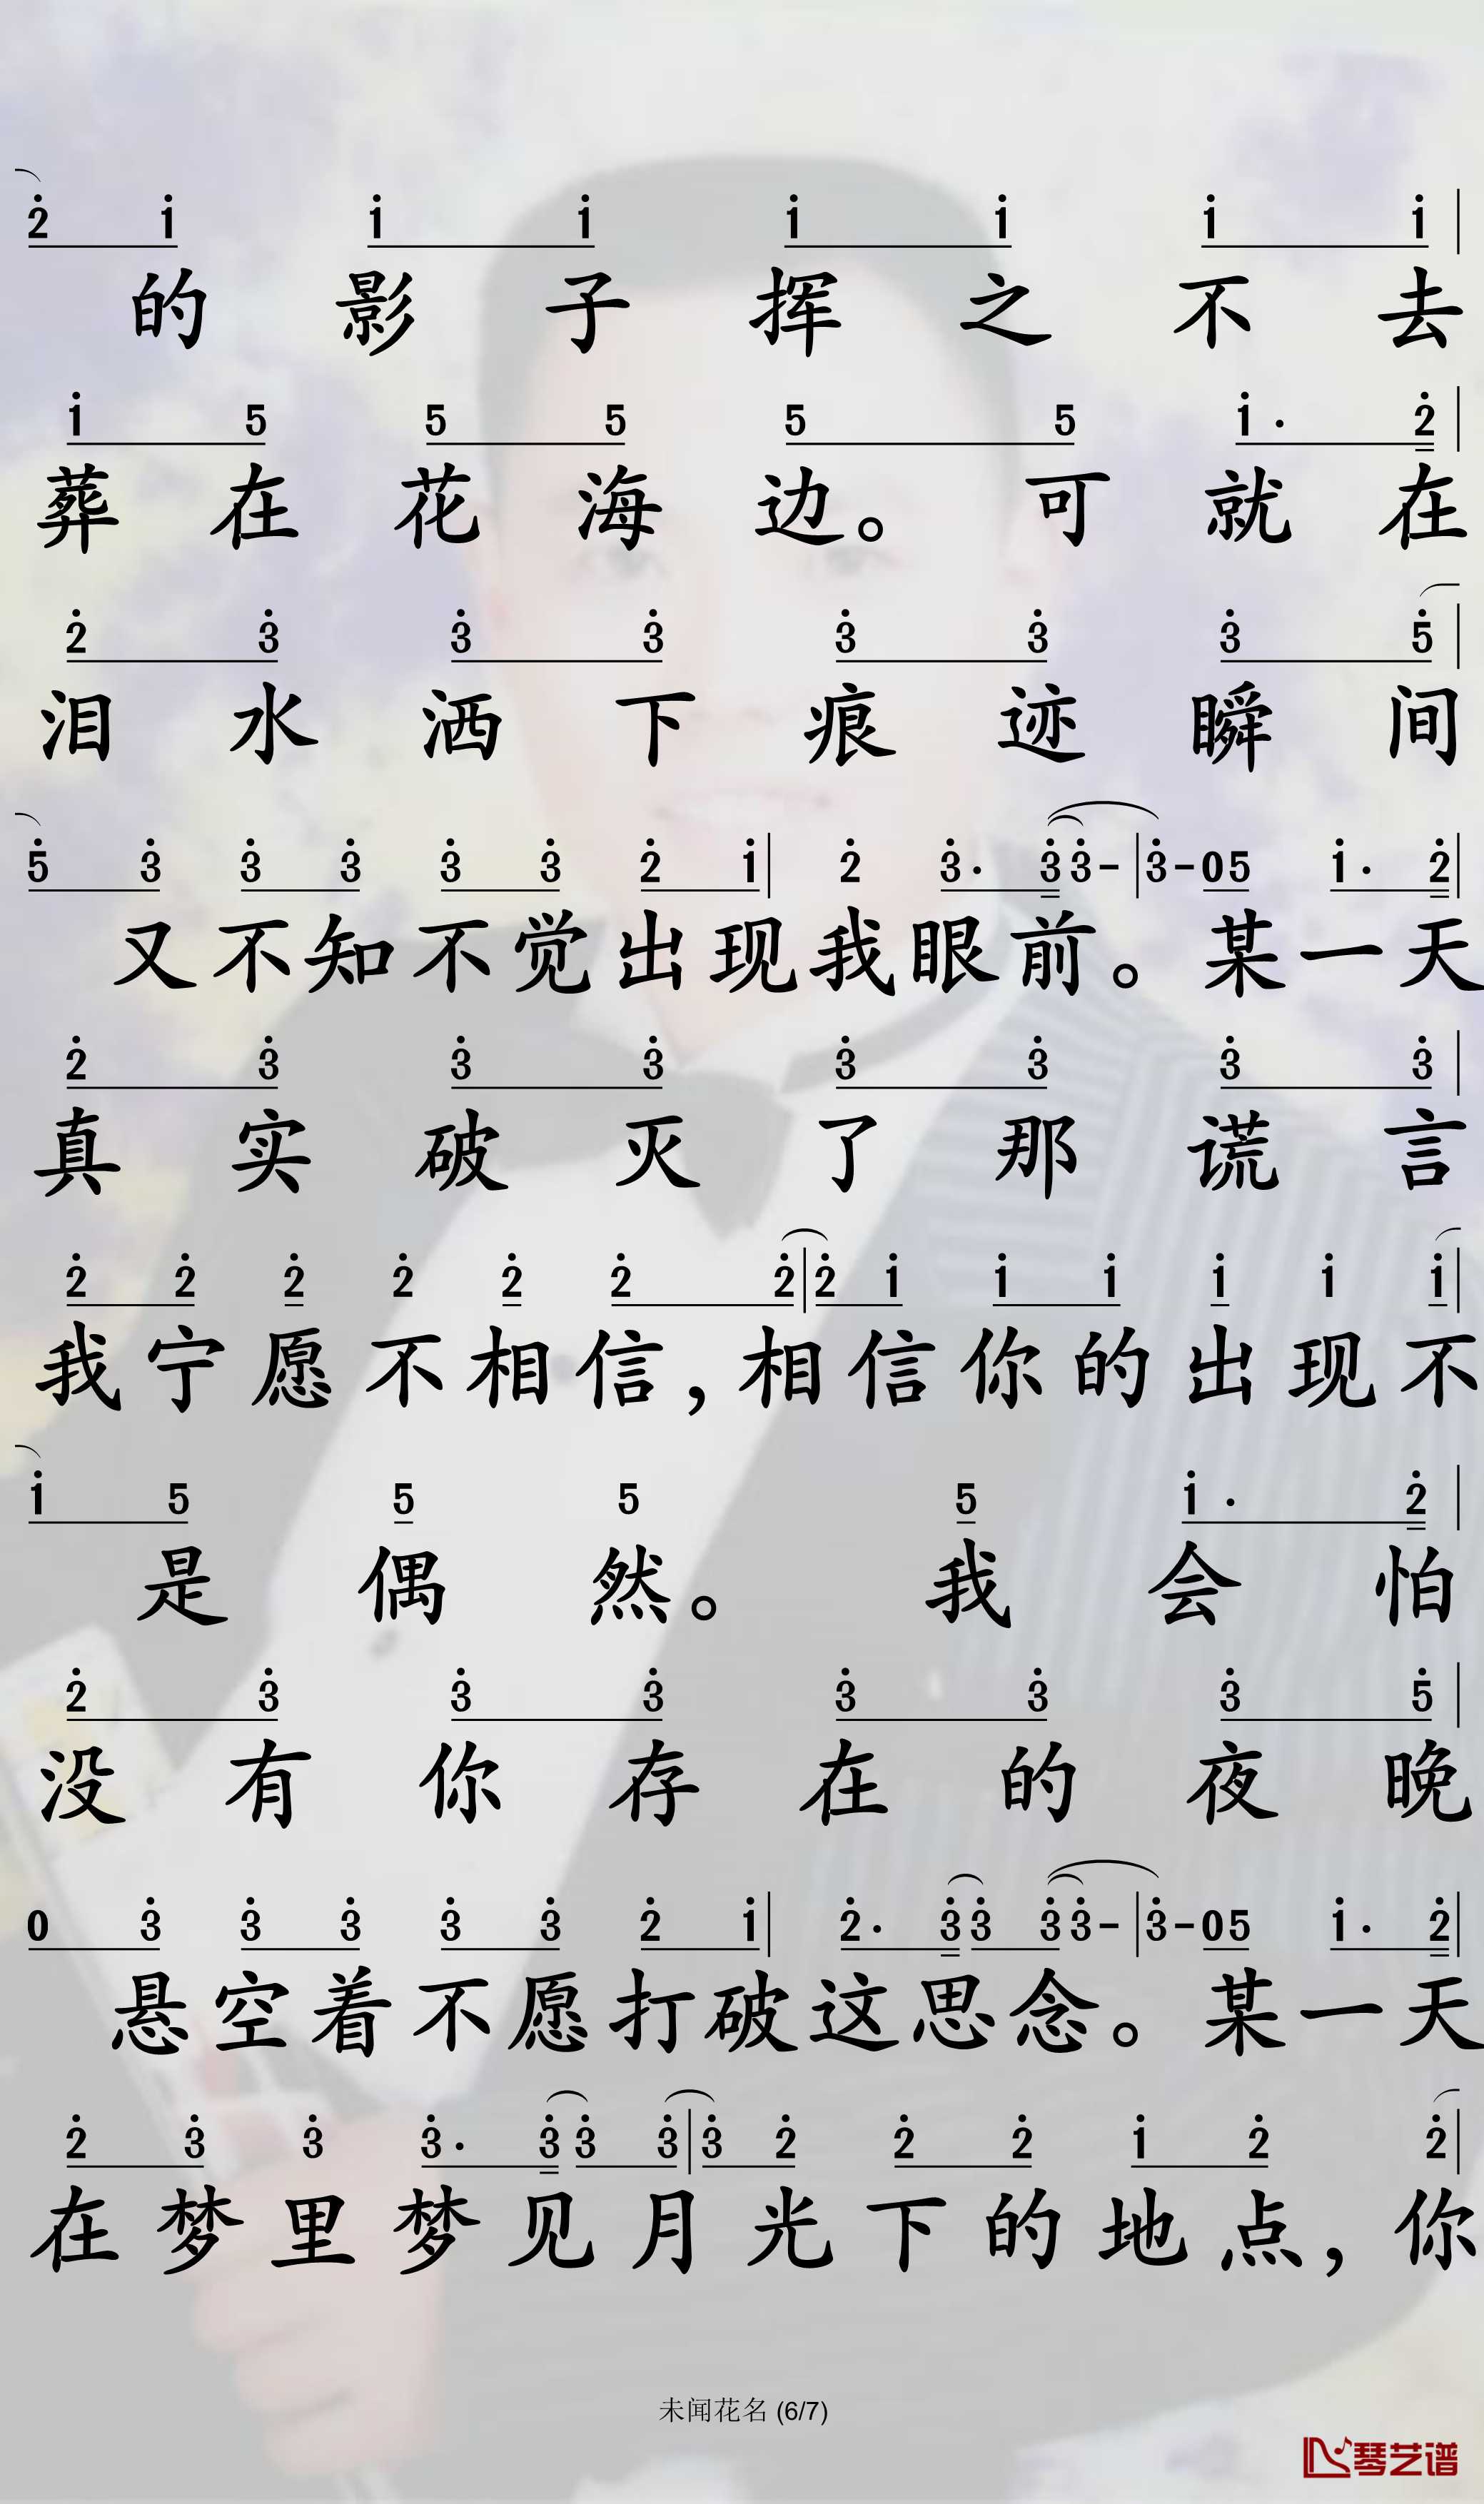 2 1 1 1 1 1 1 1
的影子挥之不去
1 5 5 5 5 5 1· 2
葬在花海边。可就在
2 3 3 3 3 3 3 5
泪水洒下痕迹瞬间
5 3 3 3 3 3 2 1 | 2 3· 3 3 - | 3 - 0 5 1· 2
又不知不觉出现我眼前。某一天
2 3 3 3 3 3 3 3
真实破灭了那谎言
2 2 2 2 2 2 2 | 2 1 1 1 1 1 1
我宁愿不相信,相信你的出现不
1 5 5 5 5 1· 2
是偶然。我会怕
2 3 3 3 3 3 3 5
没有你存在的夜晚
0 3 3 3 3 3 2 1 | 2· 3 3 3 3 - | 3 - 0 5 1· 2
悬空着不愿打破这思念。某一天
2 3 3 3· 3 3 3 | 3 2 2 2 1 2 2
在梦里梦见月光下的地点,你
未闻花名 (6/7)
琴艺谱